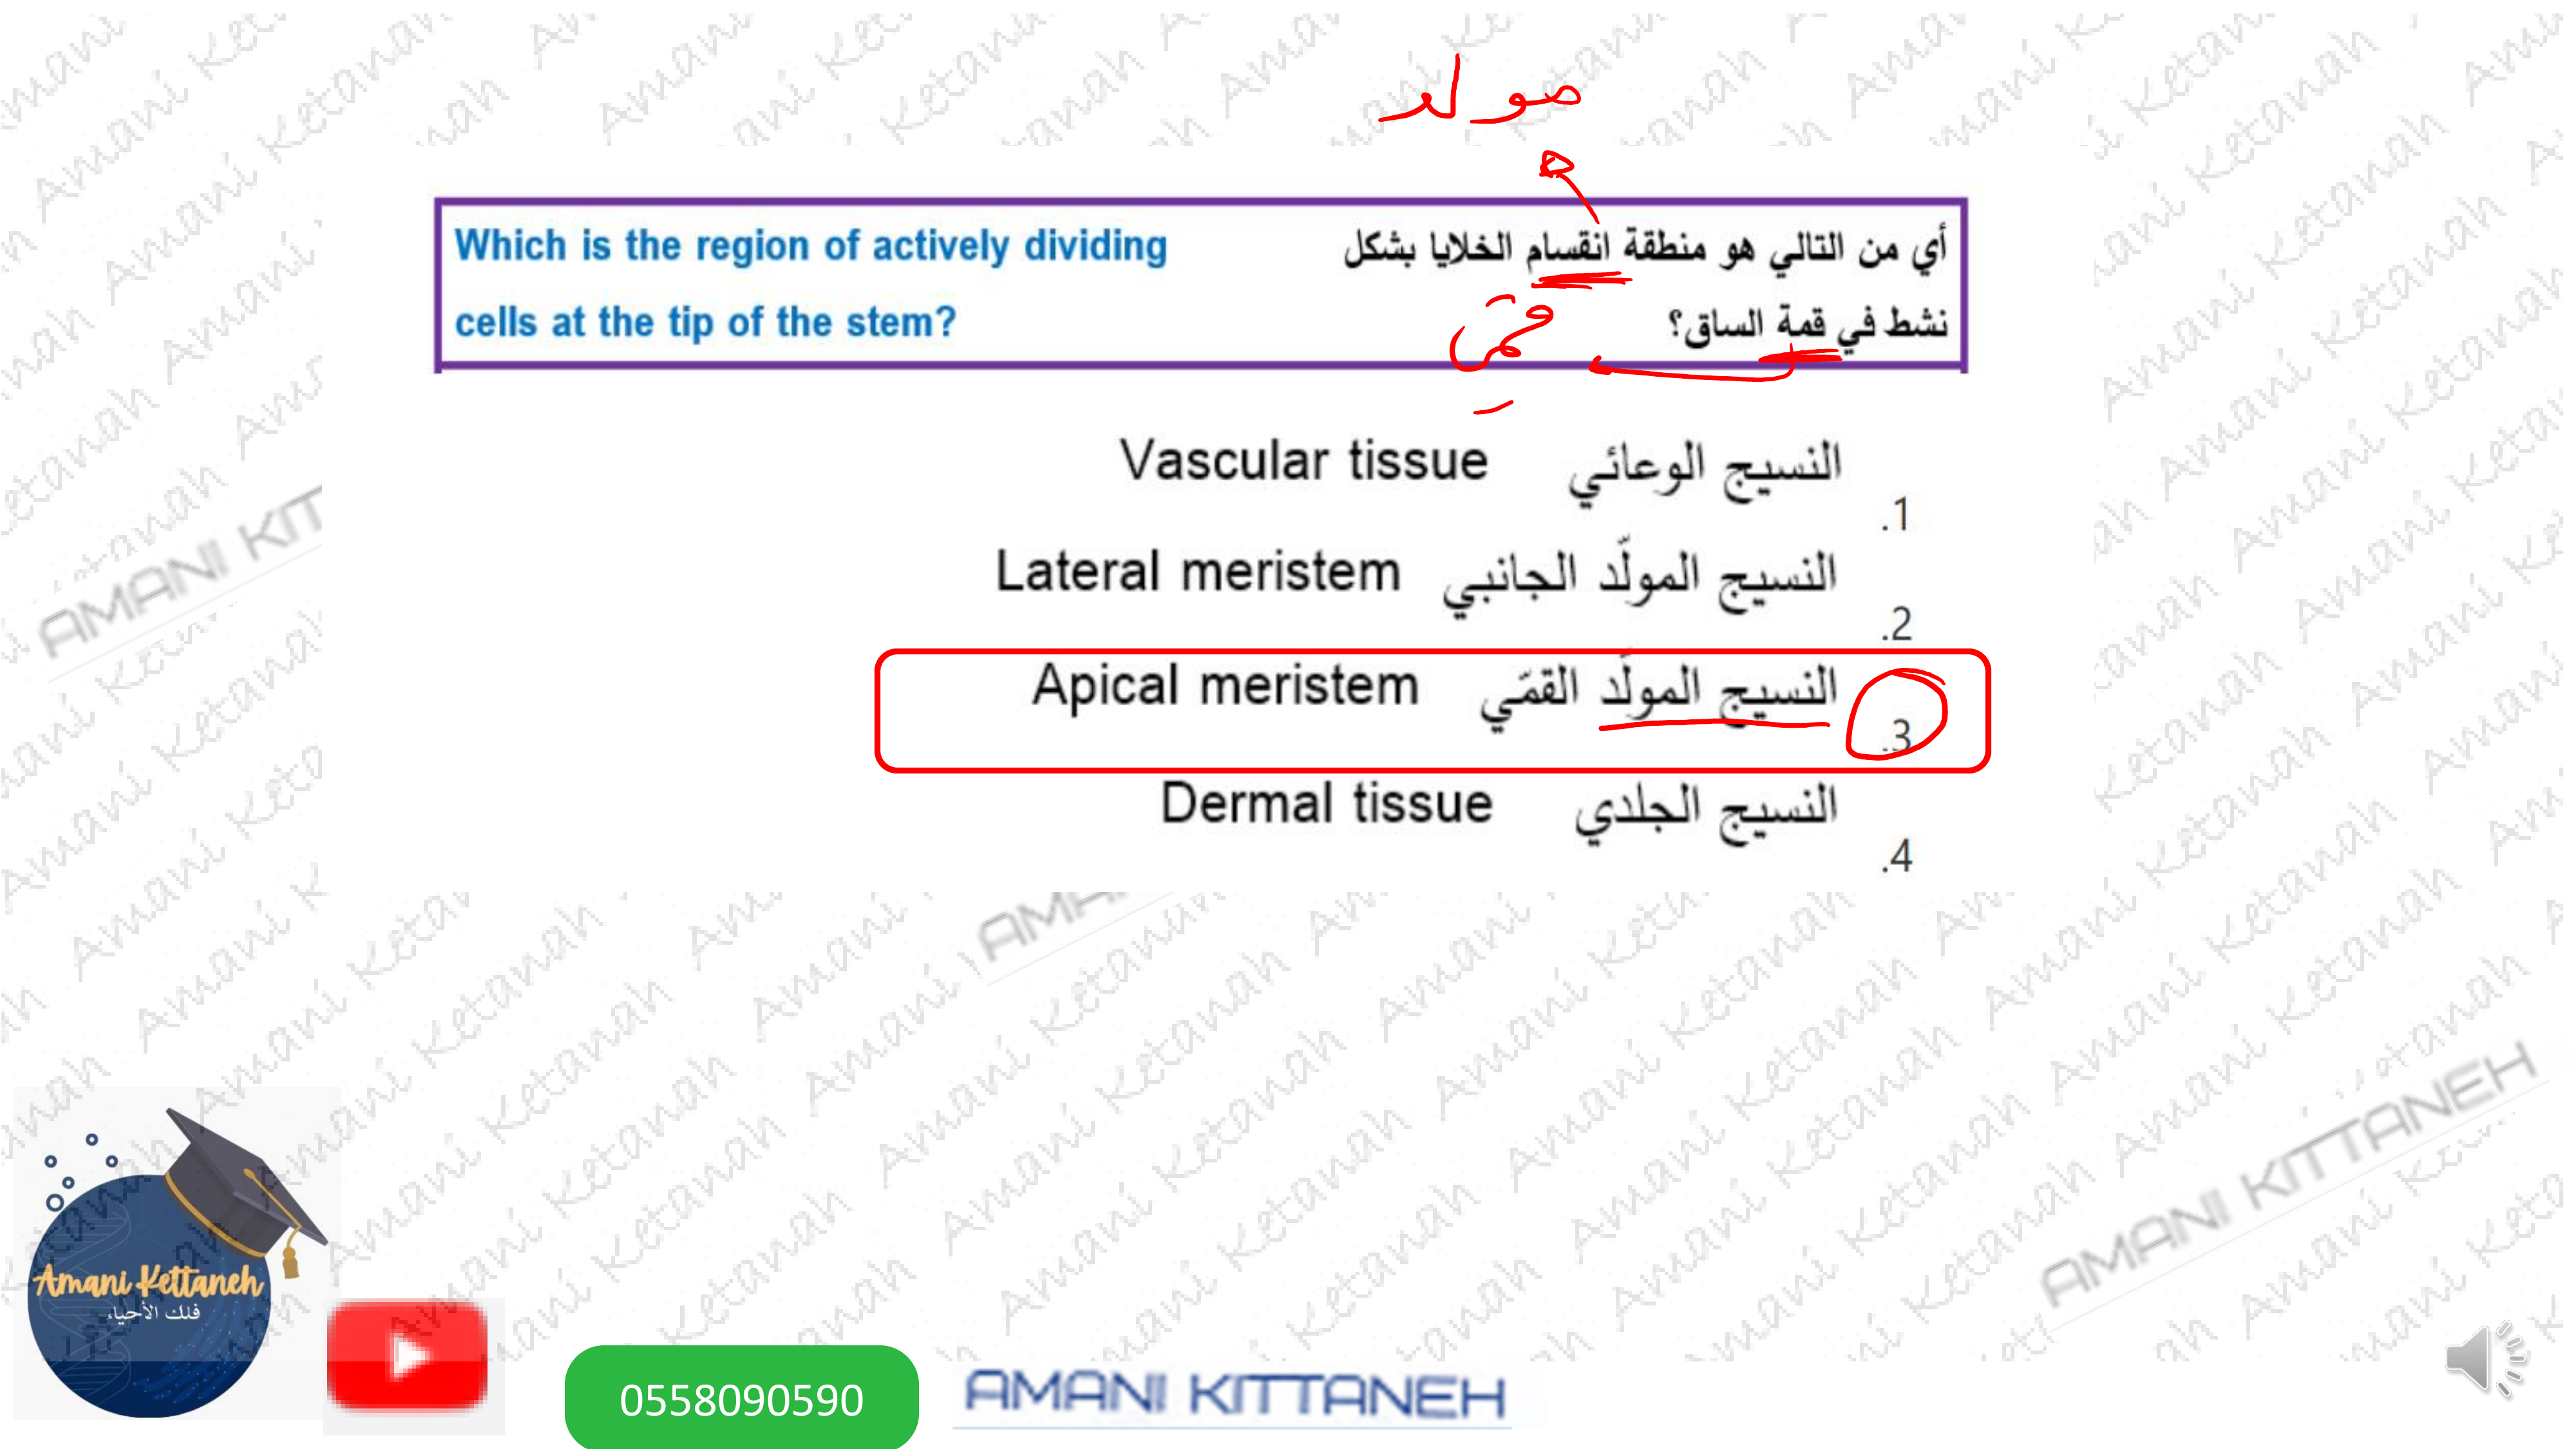 مولد
Which is the region of actively dividing
cells at the tip of the stem?
أي من التالي هو منطقة انقسام الخلايا بشكل
نشط في قمة الساق؟
قمي
Vascular tissue النسيج الوعائي .1
Lateral meristem النسيج المولّد الجانبي .2
Apical meristem النسيج المولّد القمّي .3
Dermal tissue النسيج الجلدي .4
AMANI KIT
AMA
AMANI KITTANEH
Amani Kettaneh
فلك الأحياء
0558090590
AMANI KITTANEH
Amani Ketanah